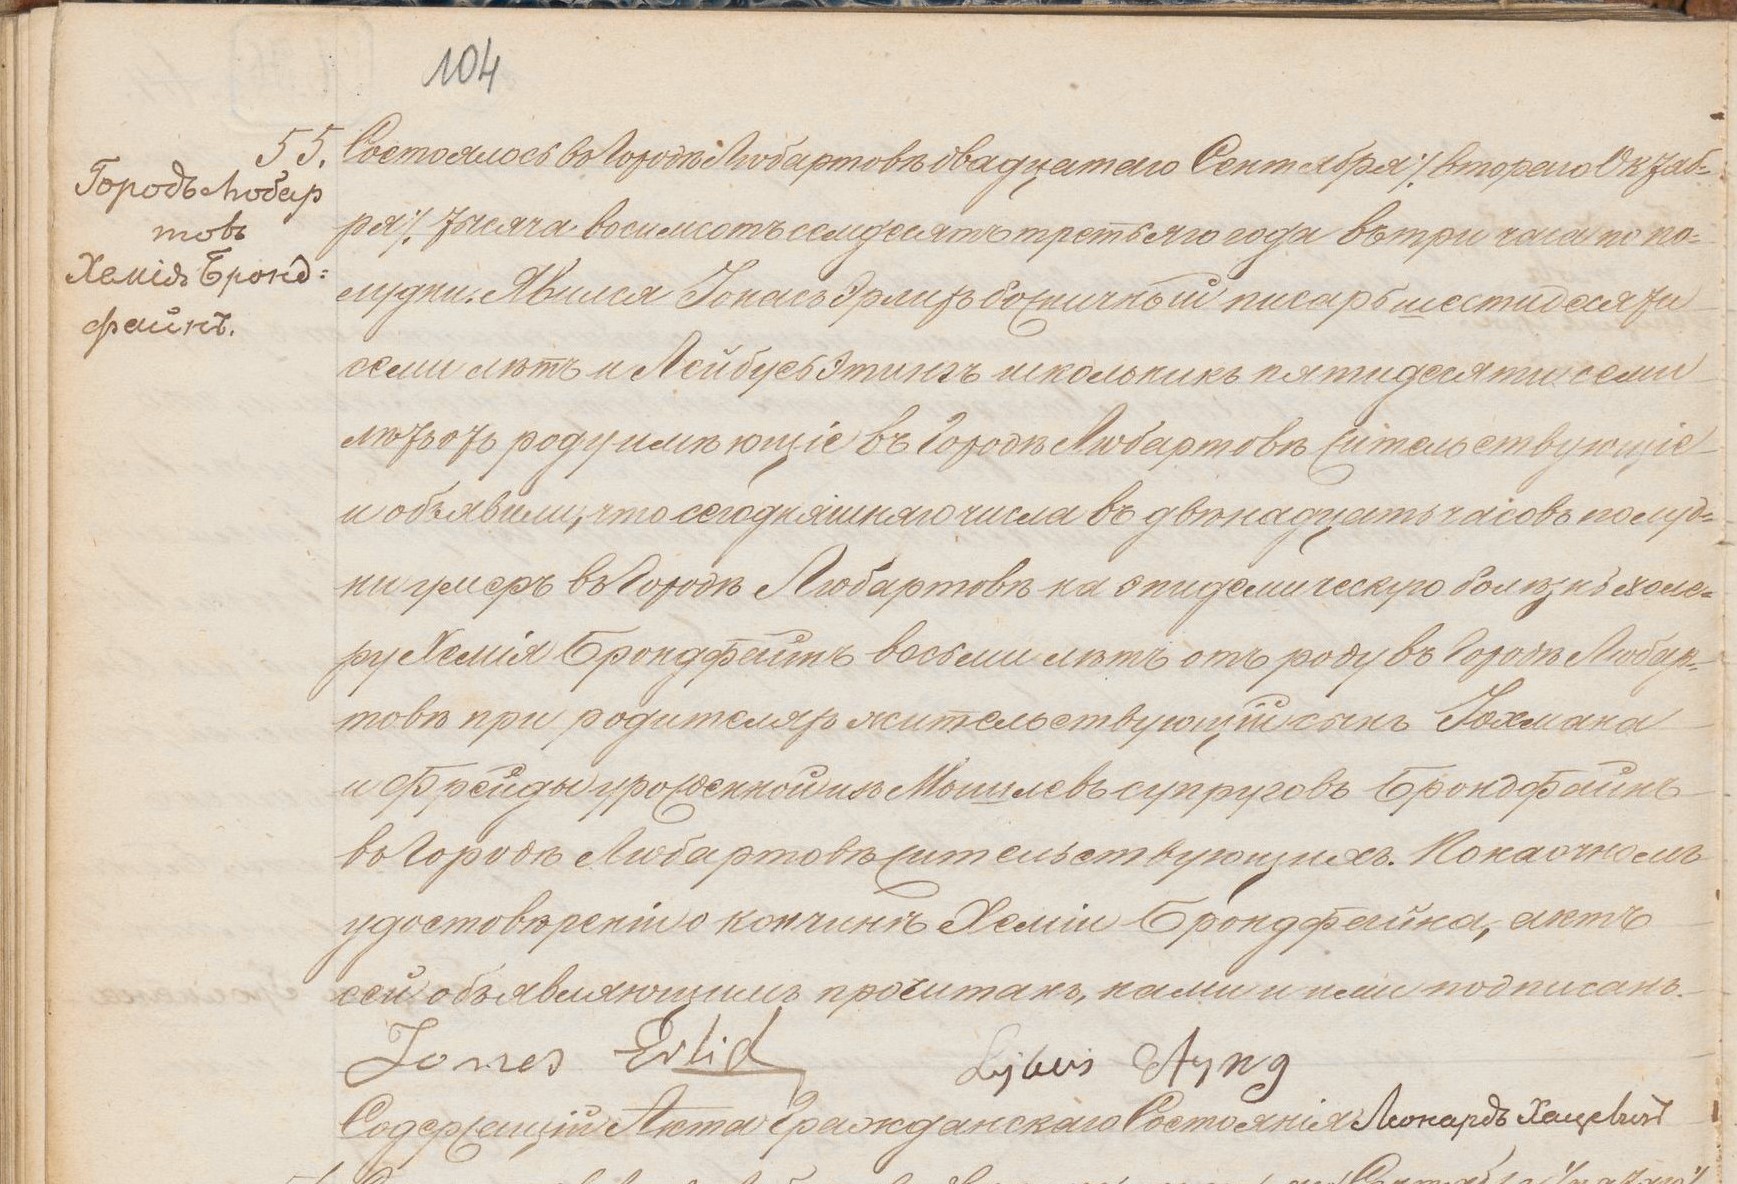 104
55.
Городъ Любар
товъ
Хемія Бронд=
файнъ.
Состоялось въ Городѣ Любартовѣ двадцатаго Сентября /: втораго Октяб=
ря :/ тысяча восемсотъ семдесятъ третьяго года въ три часа по по=
лудни. Явился Іонасъ Эрлихъ божничный писарь шестидесяти
семи лѣтъ и Лейбусь Этингъ школьникъ пятидесяти семи
лѣтъ отъ роду имѣющіе въ Городѣ Любартовѣ жительствующіе
и объявили, что сегодняшняго числа въ двѣнадцать часовъ полуд=
ни умеръ въ Городѣ Любартовѣ на эпидемическую болѣзнь холе=
ру Хемія Брондфайнъ восьми лѣтъ отъ роду въ Городѣ Любар=
товѣ при родителяхъ жительствующій сынъ Іохмана
и Фрейды урожденной изъ Мошлевъ супруговъ Брондфайнъ
въ Городѣ Любартовѣ жительствующихъ. По наочномъ
удостовѣреніи о кончинѣ Хеміи Брондфайна, актъ
сей объявляющимъ прочитанъ, нами и ими подписанъ.
Jones Erlid Lejbus Etyng
Содержащій Акта Гражданскаго Состоянія Леонардъ